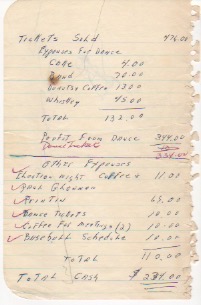 Tickets Sold 476.00
Expenses For Dance
Coke 4.00
Band 70.00
Donuts + Coffee 13.00
Whiskey 45.00
Total 132.00
Profit From Dance 344.00
334.00
Other Expenses
Election Night Coffee 11.00
Dance Tickets 10.00
Coffee For Meetings (2) 10.00
Baseball Schedule 10.00
Total 110.00
Total Cash $ 234.00